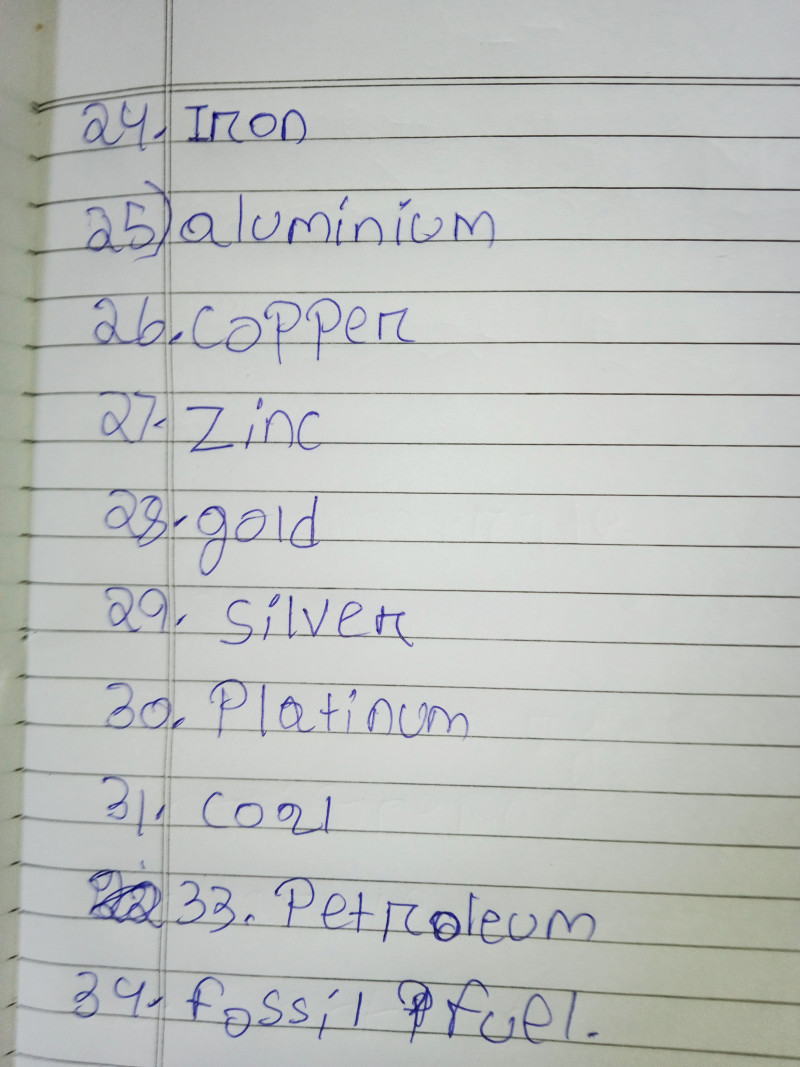 24. Iron
25) aluminium
26. copper
27. Zinc
28. gold
29. silver
30. Platinum
31. coal
33. Petroleum
34. fossil fuel.